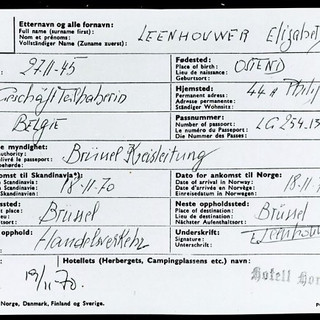 Etternavn og alle fornavn:
Full name (surname first):
Nom et prénoms:
Vollständiger Name (Zuname zuerst):
LEENHOUWER Elisabet
27-11-45
Fødested:
Place of birth:
Lieu de naissance:
Geburtsort:
OSTEND
Geschäftsinhaberin
Hjemsted:
Permanent adress:
Adresse permanente:
Ständiger Wohnsitz:
44A Philip
BELGIE
Passnummer:
Number of passport:
Le numéro du Passeport:
Die Nummer des Passes:
LG254.13
e myndighet:
authority:
livré le passeport:
behörde:
Brünel
komst til Skandinavia*):
Scandinavia:
Scandinavie:
Skandinavien:
18-11-70
Dato for ankomst til Norge:
Date of arrival in Norway:
Date d'arrivée en Norvège:
Einreisedatum in Norwegen:
18-11-7
sted:
place:
lieu:
sort:
Brünel
Neste oppholdssted:
Place of destination:
Lieu de destination:
Nächster Aufenthaltsort:
Brünel
opphold:
Handelsverkehr
Underskrift:
Signature:
Unterschrift:
Hotellets (Herbergets, Campingplassens etc.) navn:
19/11-70.
Hotell Hor
Norge, Danmark, Finland og Sverige.